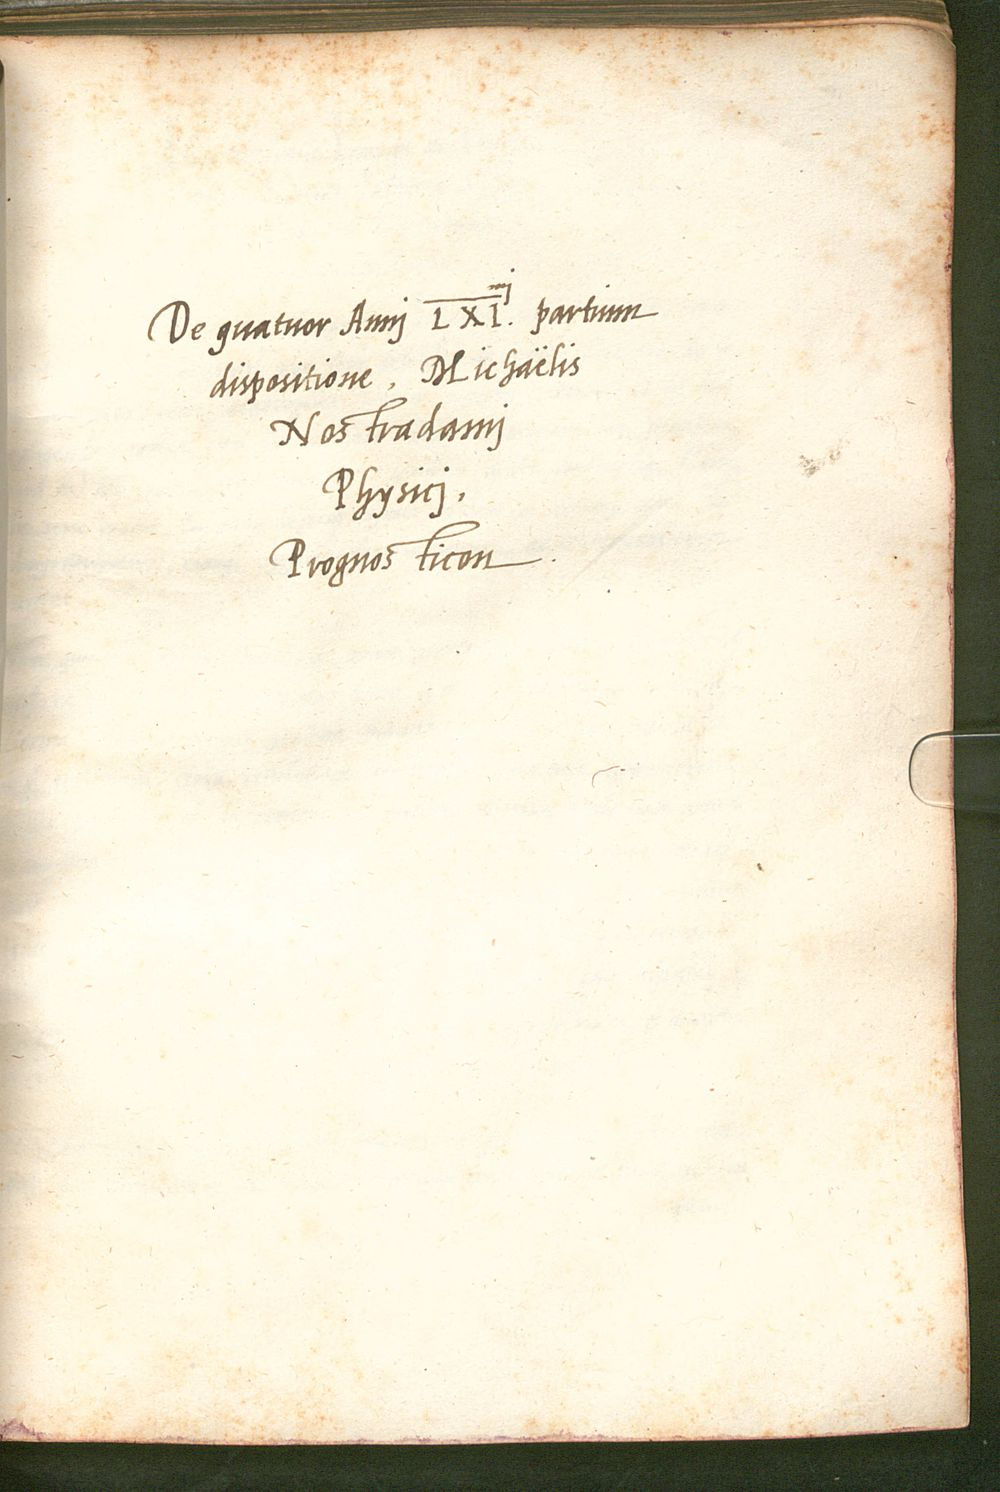 De quatuor Annj LXI.mj partium
dispositione, Michaëlis
Nostradamj
Physicj,
Prognosticon.